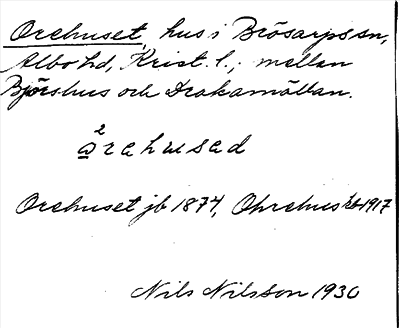 Orehuset, hus i Brösarps sn,
Albo hd, Krist. l., mellan
Björshus och Drakamöllan.
2
årahusad
Orehuset jb 1874, Ohrehus kb 1917
Nils Nilsson 1930